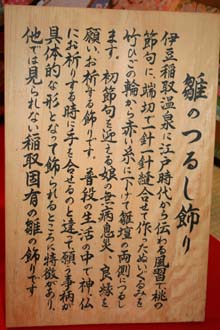 雛のつるし飾り
伊豆稲取温泉に江戸時代から伝わる風習で桃の
節句に、端切で一針一針縫合せて作ったぬいぐるみを
竹ひごの輪から赤い糸に下げて雛壇の両側につるし
ます。初節句を迎える娘の無病息災、良縁を
願い、お祈する飾りです。普段の生活の中で神仏
にお祈りする時に手を合せるのと違って願う事柄が
具体的な形となって飾られるところに特徴があり、
他では見られない稲取固有の雛の飾りです